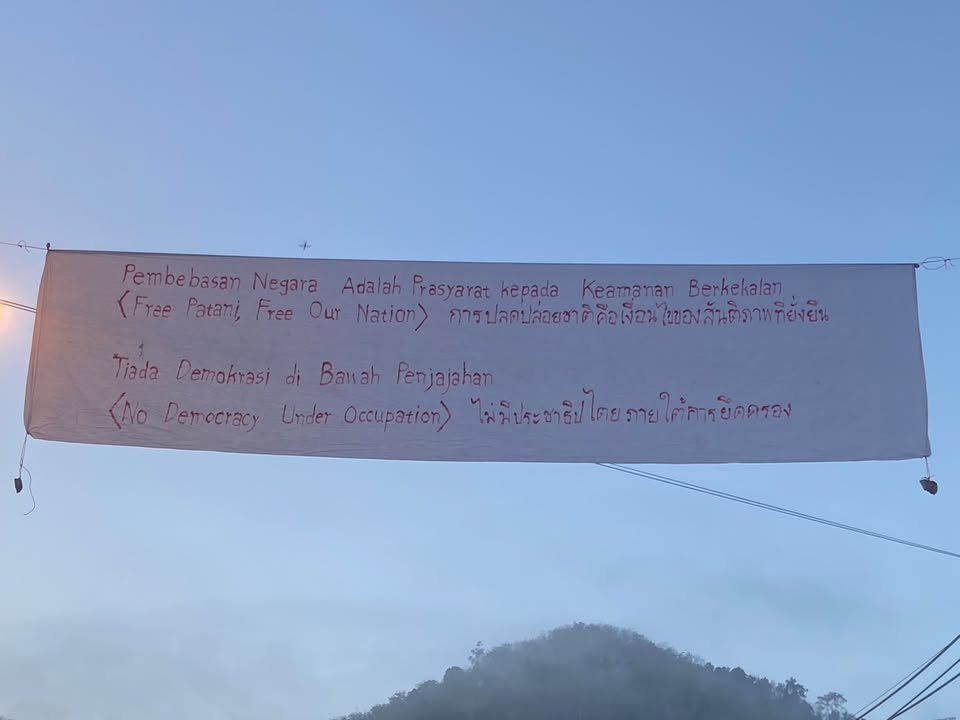 Pembebasan Negara Adalah Prasyarat kepada Keamanan Berkekalan
<Free Patani, Free Our Nation> การปลดปล่อยชาติคือเงื่อนไขของสันติภาพที่ยั่งยืน
Tiada Demokrasi di Bawah Penjajahan
<No Democracy Under Occupation> ไม่มีประชาธิปไตยภายใต้การยึดครอง